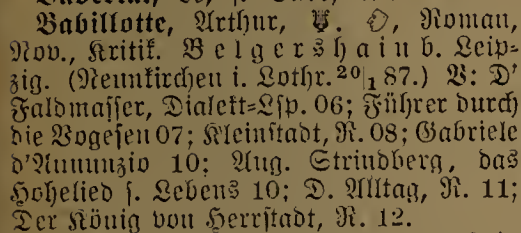 Babillotte, Arthur, Roman,
Nov., Kritik. Belgershain b. Leip-
zig. (Neunkirchen i. Lothr. 20/1 87.) V: D'
Faldmasser, Dialekt-Lsp. 06; Führer durch
die Vogesen 07; Kleinstadt, R. 08; Gabriele
d'Annunzio 10; Aug. Strindberg, das
Hohelied s. Lebens 10; D. Alltag, R. 11;
Der König von Herrstadt, R. 12.